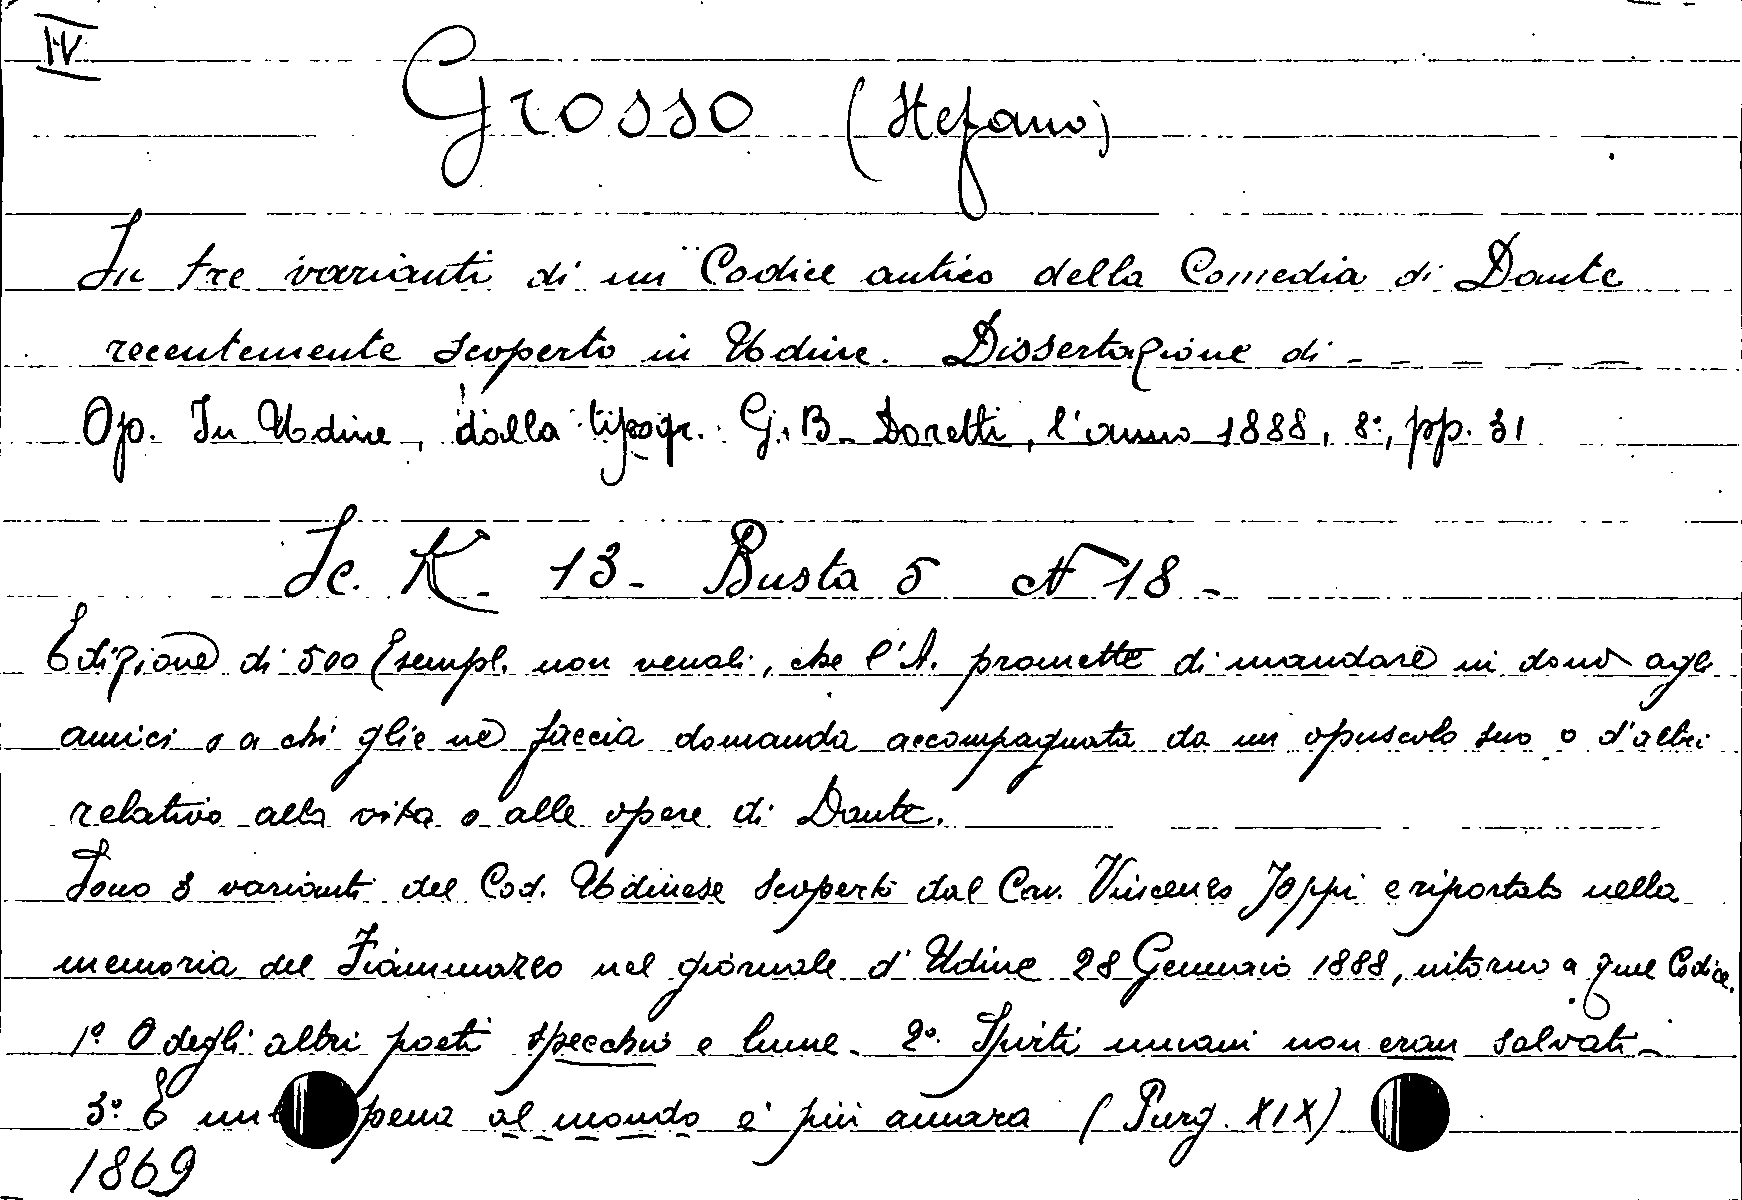 IV
Grosso (Stefano)
In tre varianti di un Codice antico della Comedia di Dante
recentemente scoperto in Udine. Dissertazione di - - - - -
Op. In Udine, dalla tipogr. G. B. Doretti, l'anno 1888, 8°, pp. 31
Sc. K. 13 - Busta 5 N 18 -
Edizione di 500 Esempl. non venali, che l'A. promette di mandare in dono agli
amici o a chi glie ne faccia domanda accompagnata da un opuscolo suo o d'altri
relativo alla vita o alle opere di Dante.
Sono 3 varianti del Cod. Udinese scoperto dal Cav. Vincenzo Joppi e riportato nella
memoria del Fiammazzo nel giornale d'Udine 28 Gennaio 1888, intorno a quel Codice.
1° O degli altri poeti specchio e lume. 2° Spirti umani non eran salvati -
3° E pena al mondo è più amara (Purg. XIX)
1869